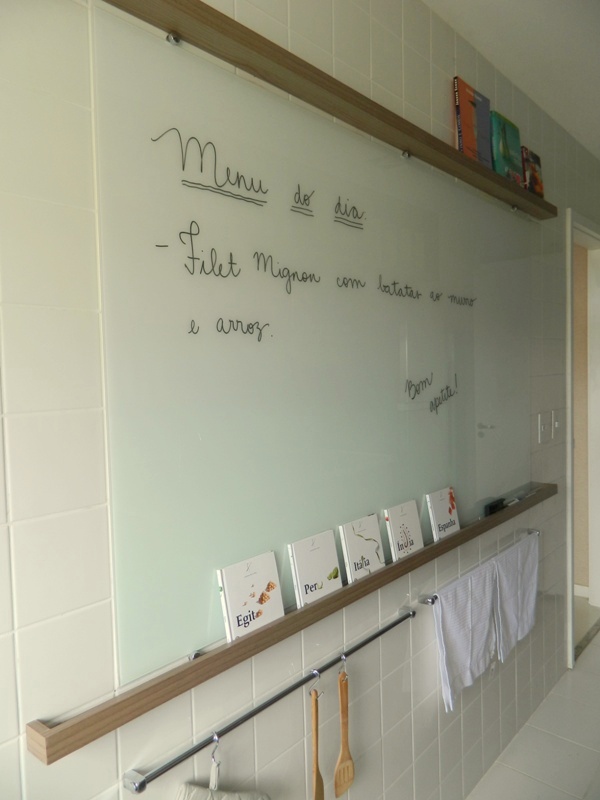 Menu do dia.
- Filet Mignon com batatas ao murro
e arroz.
Bom
apetite!
Egito
Peru
Itália
Índia
Espanha